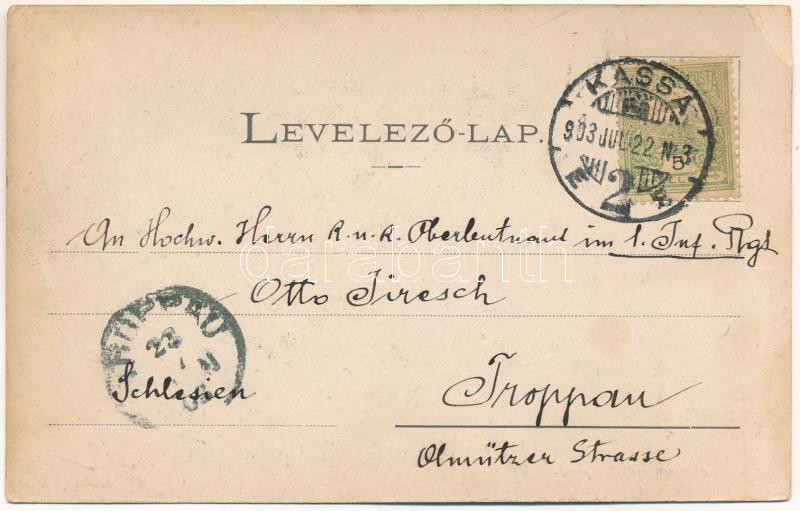 LEVELEZŐ-LAP.
KASSA
903 JUL 22 N 3
5
An Hochw. Herrn K. u. K. Oberleutnant im 1. Inf. Rgt
darabanth
Otto Jiresch
TROPPAU
23
Schlesien
Troppau
Olmützer Strasse